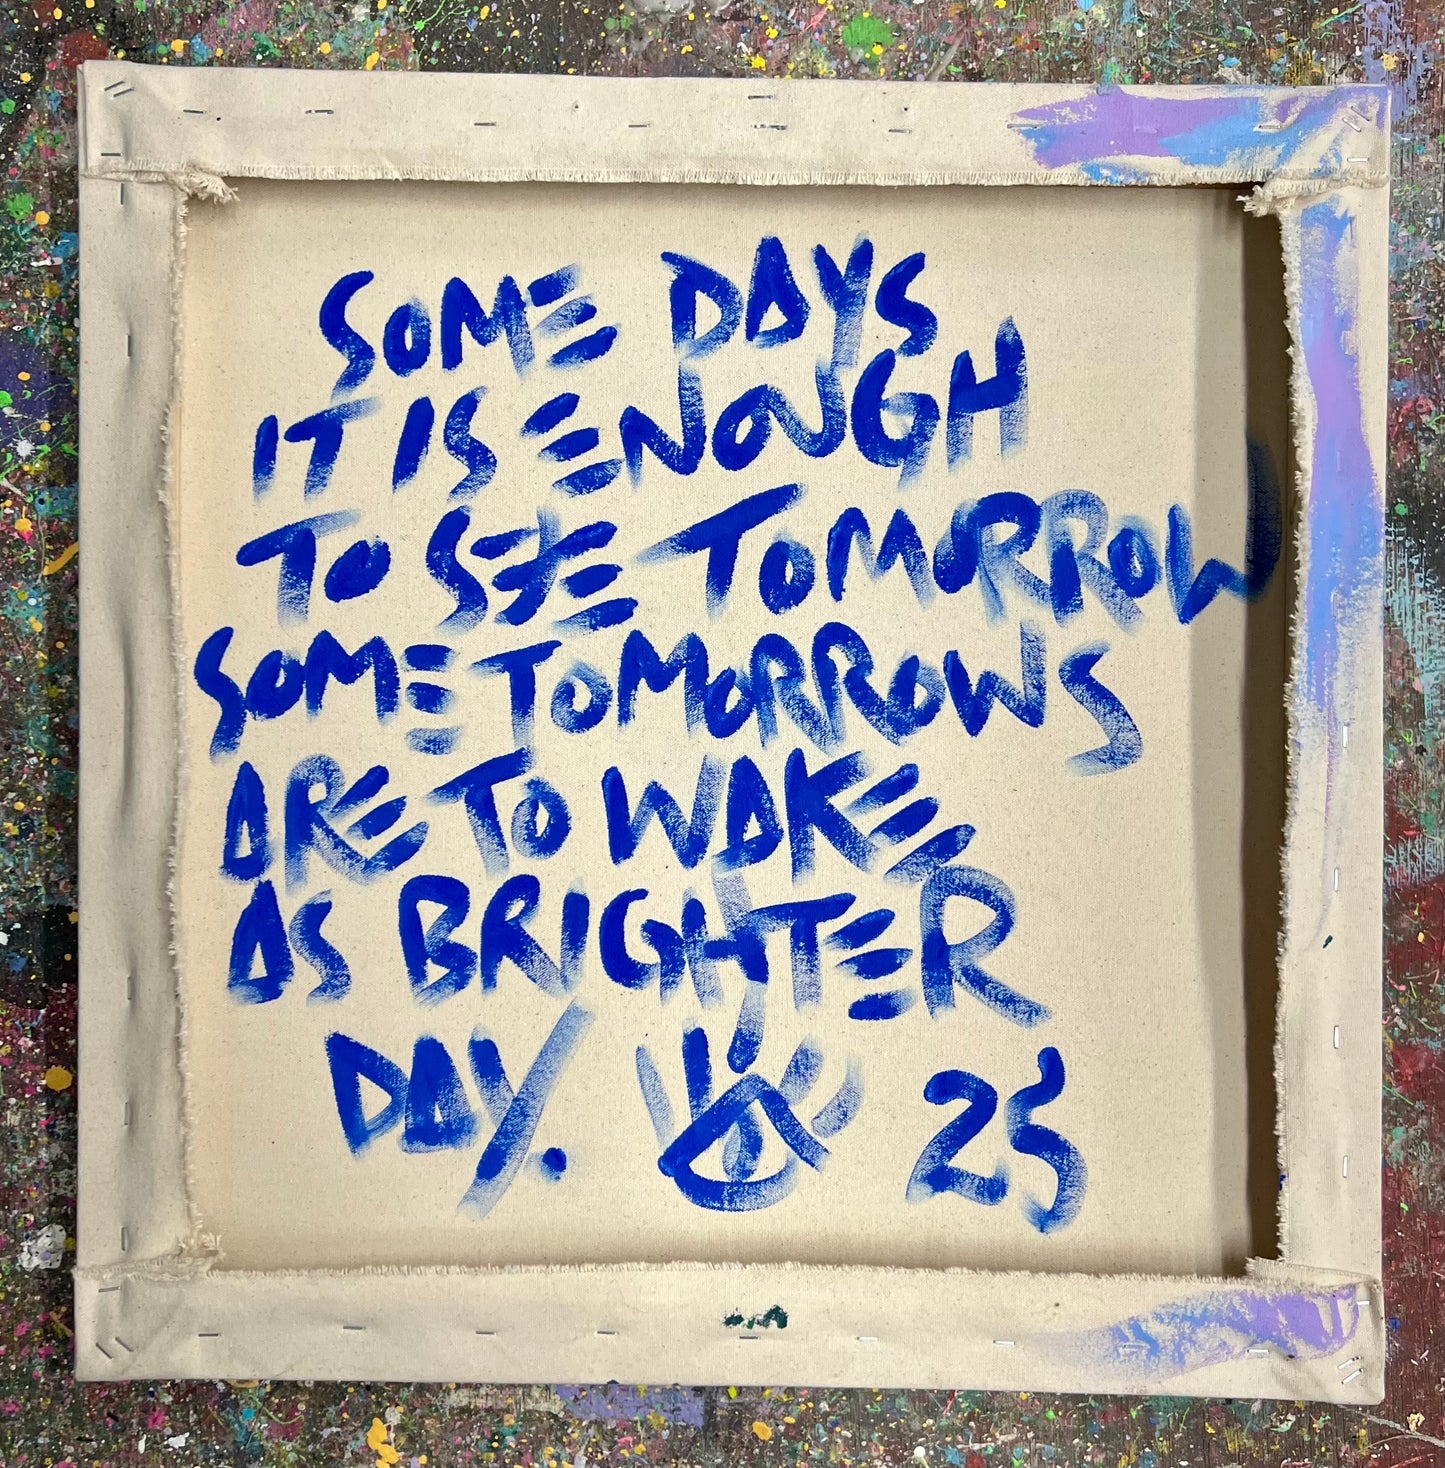 SOME DAYS
IT IS ENOUGH
TO SEE TOMORROW
SOME TOMORROWS
ARE TO WAKE
AS BRIGHTER
DAY. 25